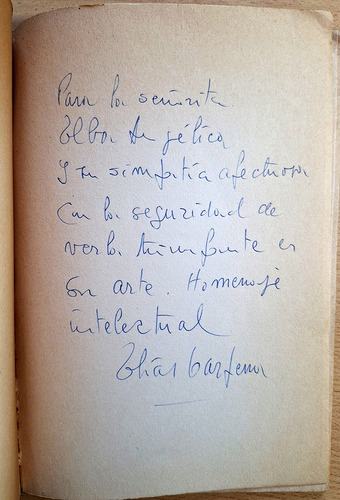 Para la señorita
Elba Angélica
y su simpatía afectuosa
Con la seguridad de
verla triunfante en
su arte. Homenaje
intelectual
Elías Carpena